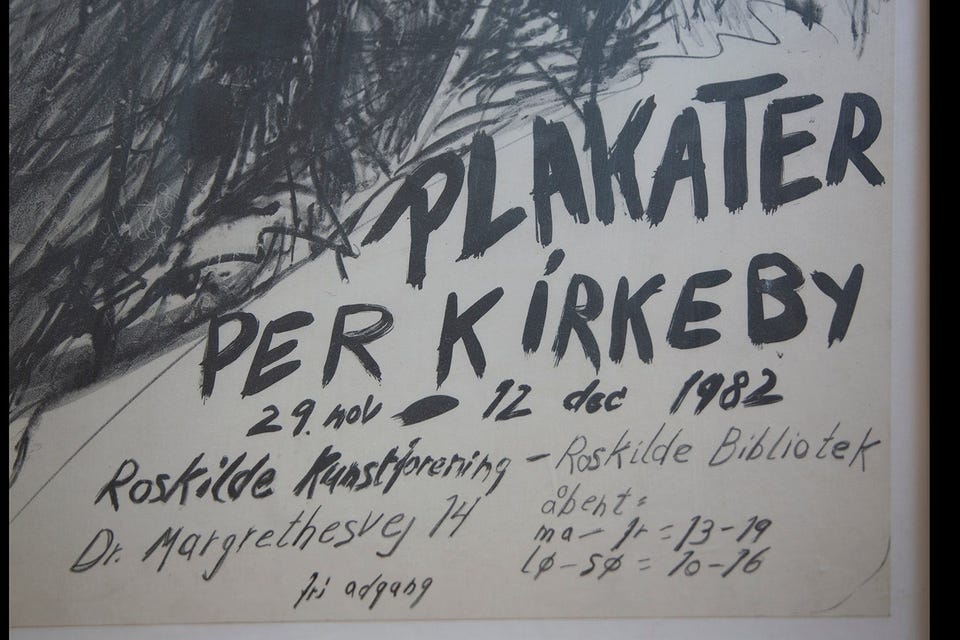 PLAKATER
PER KIRKEBY
29. nov - 12 dec 1982
Roskilde Kunstforening - Roskilde Bibliotek
Dr. Margrethesvej 14
fri adgang
åbent:
ma - fr = 13-19
lø - sø = 10-16